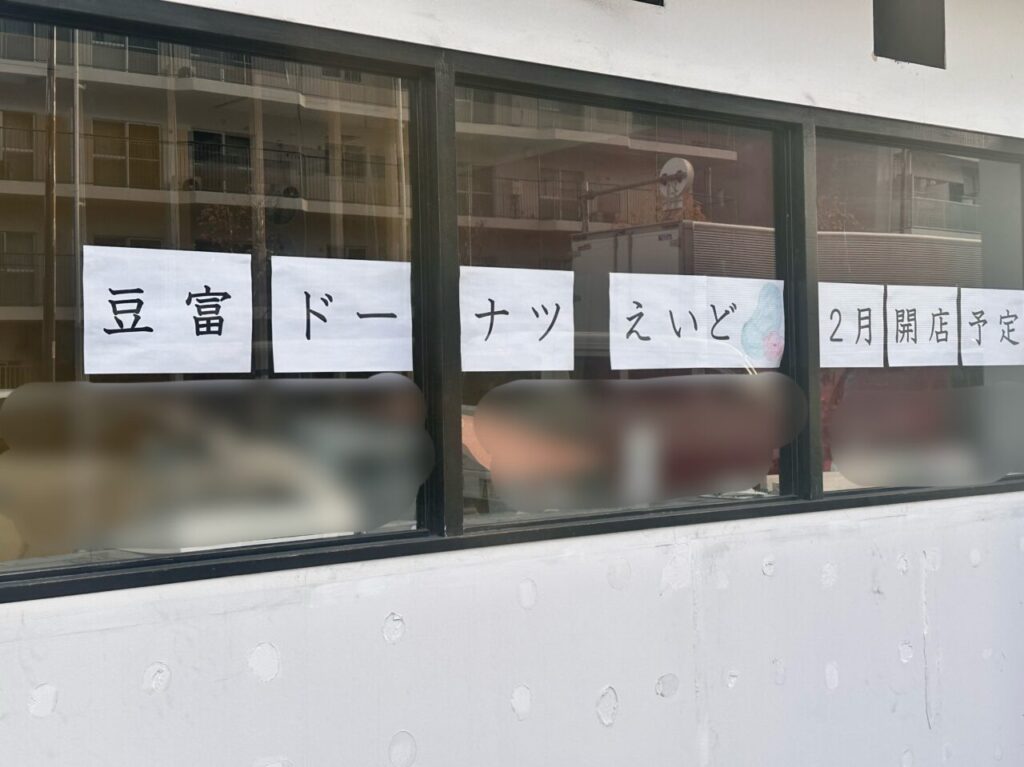 豆富ドーナツえいど 2月開店予定